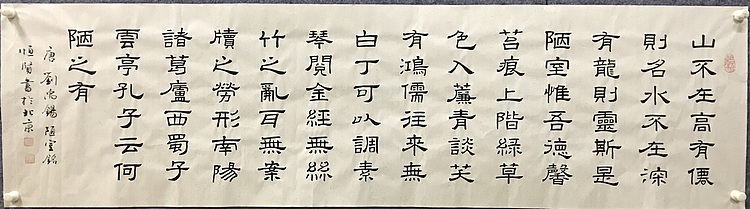 山不在高有僊
則名水不在深
有龍則靈斯是
陋室惟吾德馨
苔痕上階綠草
色入簾青談笑
有鴻儒往來無
白丁可以調素
琴閱金經無絲
竹之亂耳無案
牘之勞形南陽
諸葛廬西蜀子
雲亭孔子云何
陋之有
唐劉禹錫陋室銘
書於北京